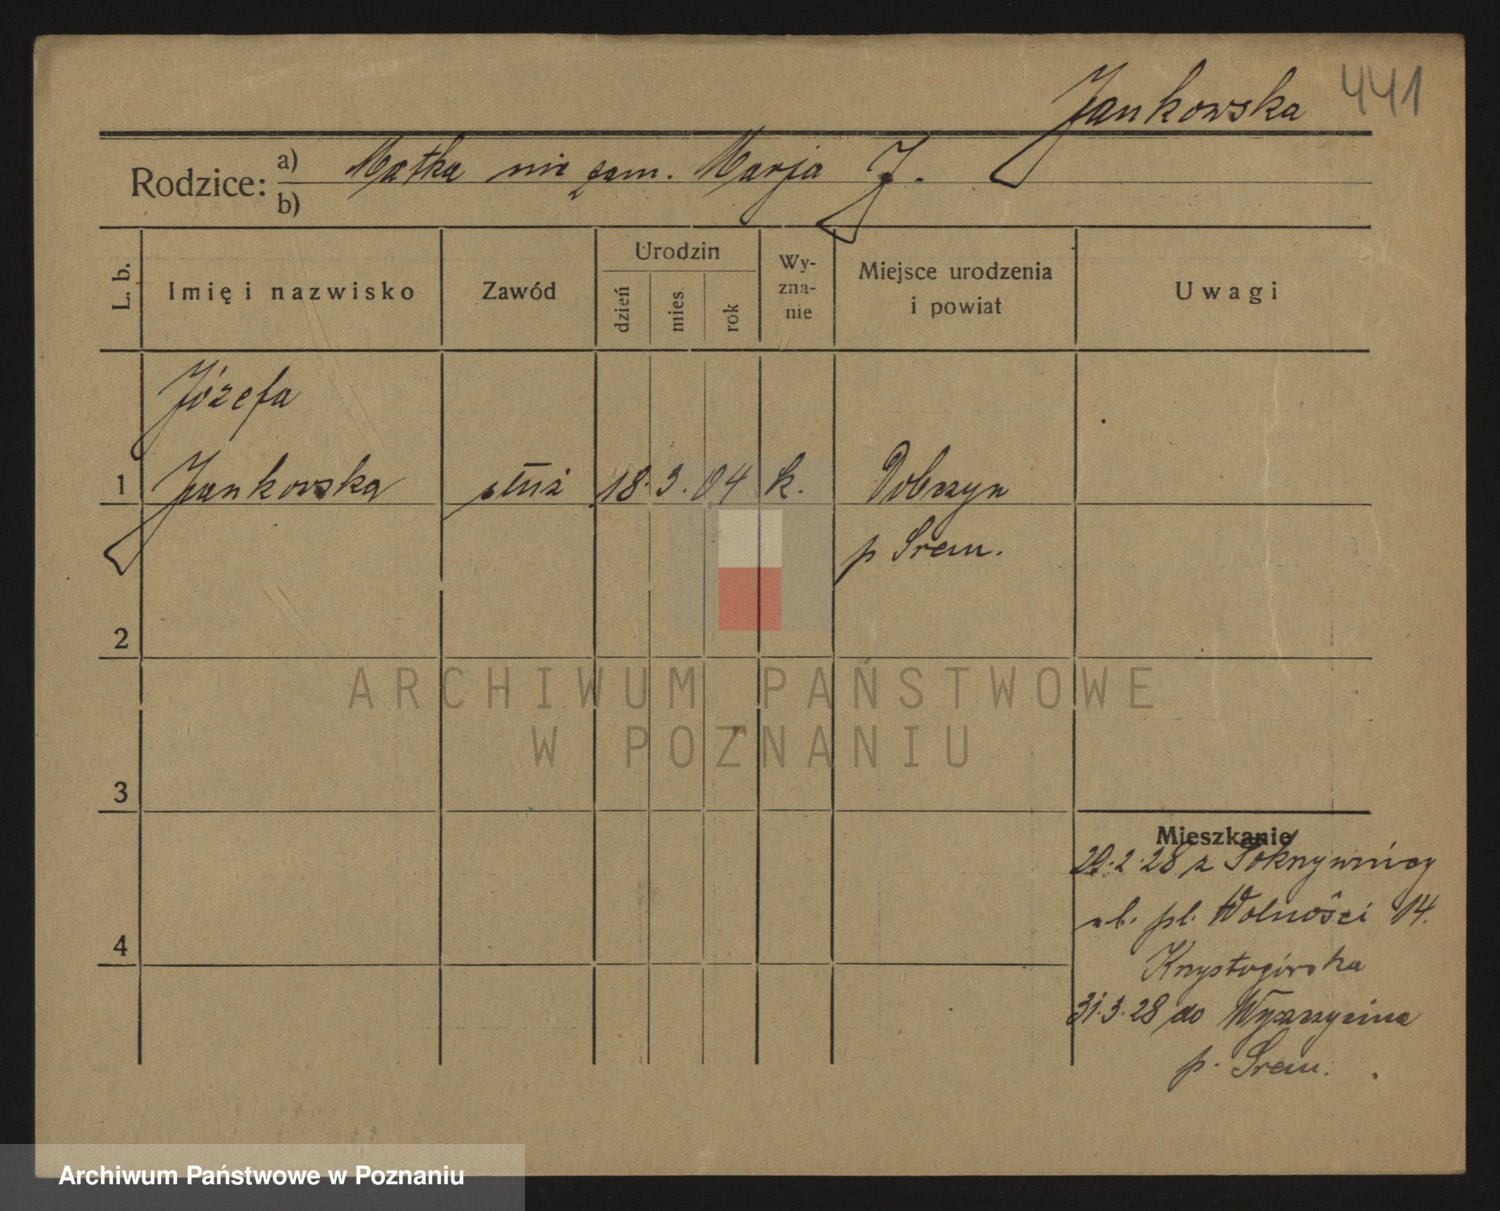 Jankowska 441
Rodzice: a) Matka nie zam. Marja J.
b)
L. b. Imię i nazwisko Zawód Urodzin dzień mies rok Wyznanie Miejsce urodzenia i powiat Uwagi
Józefa
1 Jankowska służ 18. 3. 04 k. Dobczyn
p Śrem.
2
ARCHIWUM PAŃSTWOWE
W POZNANIU
3
Mieszkanie
20.2.28 z
pl. Wolności 14.
4
31.3.28 do
p. Śrem.
Archiwum Państwowe w Poznaniu